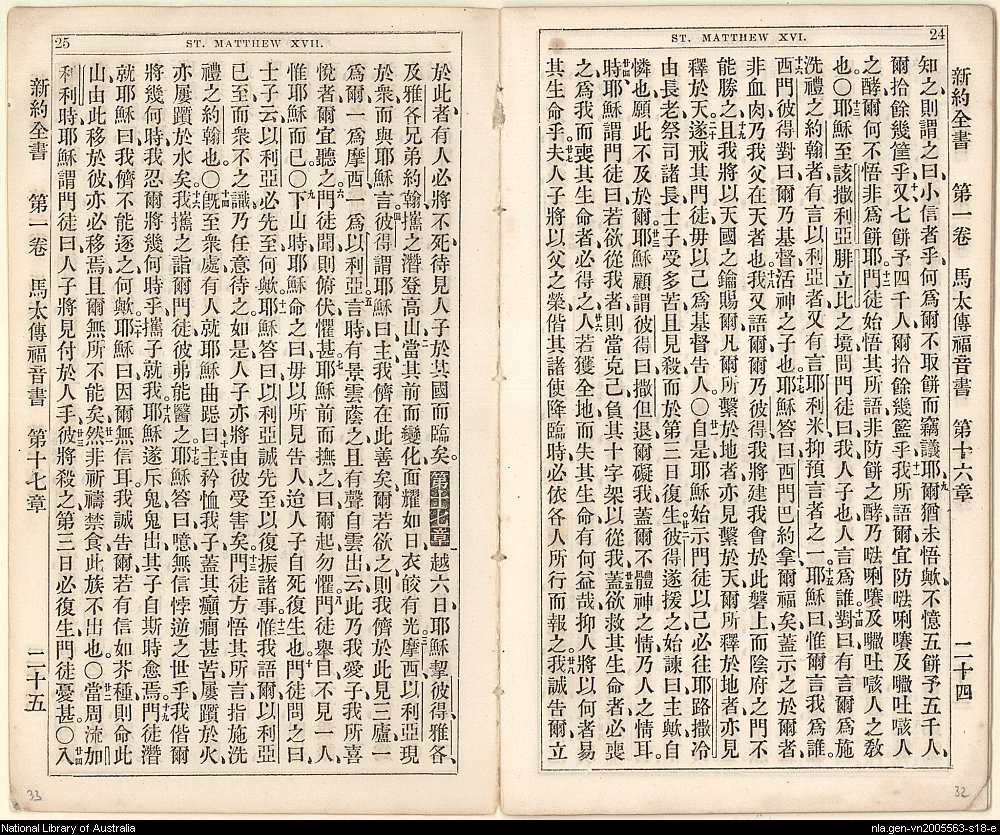 24
ST. MATTHEW XVI.
新約全書 第一卷 馬太傳福音書 第十六章 二十四
知之則謂之曰小信者乎何爲爾不取餅而竊議耶九爾猶未悟歟不憶五餅予五千人
爾拾餘幾筐乎十又七餅予四千人爾拾餘幾籃乎十一我所語爾宜防唎及吐咳人
之酵爾何不悟非爲餅耶十二門徒始悟其所語非防餅之酵乃唎及吐咳人之敎
也○十三耶穌至該撒利亞腓立比之境問門徒曰我人子也人言爲誰十四對曰有言爾爲施
洗禮之約翰者有言以利亞者又有言耶利米抑預言者之一十五耶穌曰惟爾言我爲誰
十六西門彼得對曰爾乃基督活神之子也十七耶穌答曰西門巴約拿爾福矣蓋示之於爾者
非血肉乃我父在天者也十八我又語爾爾乃彼得我將建我會於此磐上而陰府之門不
能勝之十九且我將以天國之鑰賜爾凡爾所繫於地者亦見繫於天爾所釋於地者亦見
釋於天二十遂戒其門徒毋以己爲基督告人○廿一自是耶穌始示門徒以己必往耶路撒冷
由長老祭司諸長士子受多苦且見殺而於第三日復生廿二彼得遂援之始諫曰主歟自
憐也願此不及於爾廿三耶穌顧謂彼得曰撒但退爾礙我蓋爾不體神之情乃人之情耳
廿四時耶穌謂門徒曰若欲從我者則當克己負其十字架以從我廿五蓋欲救其生命者必喪
之爲我而喪其生命者必得之廿六人若獲全地而失其生命有何益哉抑人將以何者易
其生命乎廿七夫人子將以父之榮偕其諸使降臨時必依各人所行而報之廿八我誠告爾立
32
25
ST. MATTHEW XVII.
於此者有人必將不死待見人子於其國而臨矣第十七章越六日耶穌挈彼得雅各
及雅各兄弟約翰攜之潛登高山二當其前而變化面耀如日衣皎有光三摩西以利亞現
於衆而與耶穌言四彼得謂耶穌曰主我儕在此善矣爾若欲之則我儕於此見三廬一
爲爾一爲摩西一爲以利亞五言時有景雲蔭之且有聲自雲出云此乃我愛子我所喜
悅者爾宜聽之六門徒聞則俯伏懼甚七耶穌前而撫之曰爾起勿懼八門徒舉目不見一人
惟耶穌而已○九下山時耶穌命之曰毋以所見告人迨人子自死復生也十門徒問之曰
士子云以利亞必先至何歟十一耶穌答曰以利亞誠先至以復振諸事十二惟我語爾以利亞
已至而衆不之識乃任意待之如是人子亦將由彼受害矣十三門徒方悟其所言指施洗
禮之約翰也○十四旣至衆處有人就耶穌曲跽曰十五主矜恤我子蓋其癲癎甚苦屢躓於火
亦屢躓於水矣十六我攜之詣爾門徒彼弗能醫之十七耶穌答曰噫無信悖逆之世乎我偕爾
將幾何時我忍爾將幾何時乎攜子就我十八耶穌遂斥鬼鬼出其子自斯時愈焉十九門徒潛
就耶穌曰我儕不能逐之何歟二十耶穌曰因爾無信耳我誠告爾若有信如芥種則命此
山由此移於彼亦必移焉且爾無所不能矣廿一然非祈禱禁食此族不出也○廿二當周流加
利利時耶穌謂門徒曰人子將見付於人手廿三彼將殺之第三日必復生門徒憂甚○廿四入
新約全書 第一卷 馬太傳福音書 第十七章 二十五
33
National Library of Australia
nla.gen-vn2005563-s18-e